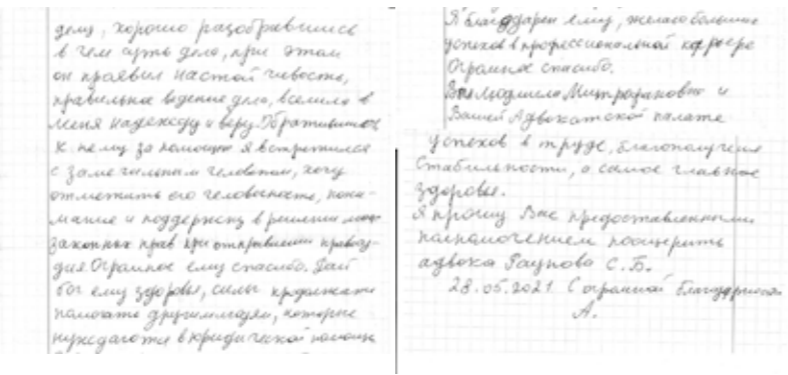 делу, хорошо разобравшись
в чем суть дела, при этом
он проявил настойчивость,
правильное ведение дела, вселило в
меня надежду и веру. Обратившись
к нему за помощью я встретился
с замечательным человеком, хочу
отметить его человечность, пони-
мание и поддержку в решении моих
законных прав при отправлении правосу-
дия. Огромное ему спасибо. Дай
бог ему здоровья, силы продолжать
помогать другим людям, которые
нуждаются в юридической помощи
Я благодарен ему, желаю больших
успехов в профессиональной карьере
Огромное спасибо.
Вам Людмила Митрофановна и
Вашей Адвокатской палате
успехов в труде, благополучия
стабильности, а самое главное
здоровье.
Я прошу Вас предоставленными
полномочением поощерить
адвока Раупова С.Б.
28.05.2021 С огромной благодарностью
А.